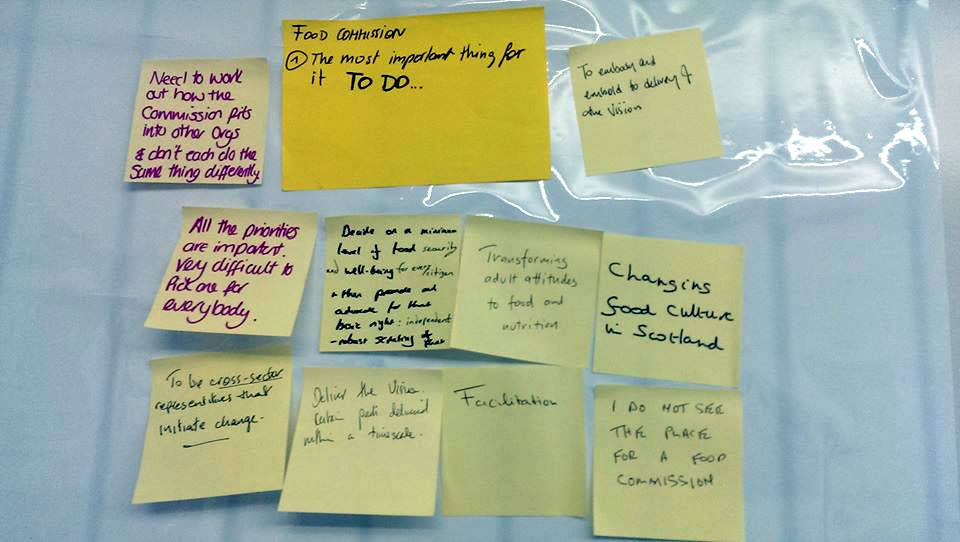 FOOD COMMISSION
① The most important thing for
it TO DO...
Need to work
out how the
Commission fits
into other Orgs
& don't each do the
same thing differently
To embody and
embold to delivery of
the Vision
All the priorities
are important.
Very difficult to
Pick one for
everybody.
Decide on a minimum
level of food security
and well-being for every citizen
& then promote and
advocate for that
basic right: independent
- robust scrutiny of that
Transforming
adult attitudes
to food and
nutrition
Changing
food culture
in Scotland
To be cross-sector
representatives that
initiate change.
Deliver the Vision.
Certain parts delivered
within a timescale.
Facilitation
I DO NOT SEE
THE PLACE
FOR A FOOD
COMMISSION